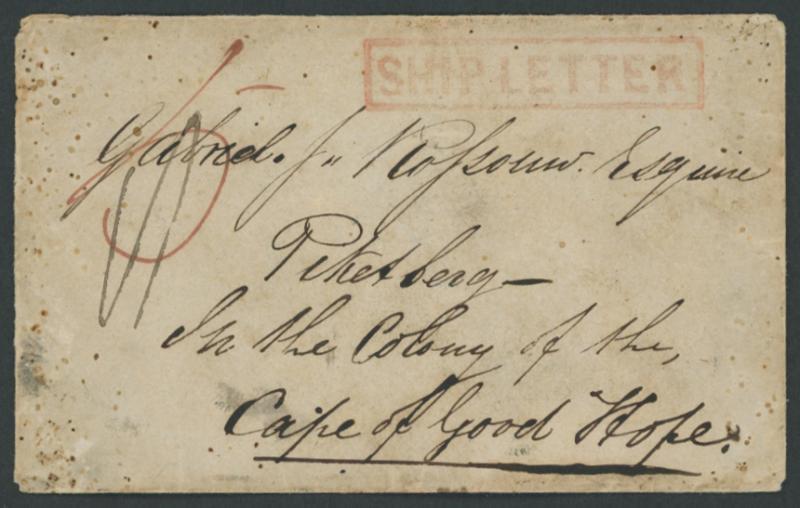 SHIP LETTER
Gabriel. J. Rossouw. Esquire
Piketberg—
In the Colony of the,
Cape of Good Hope.